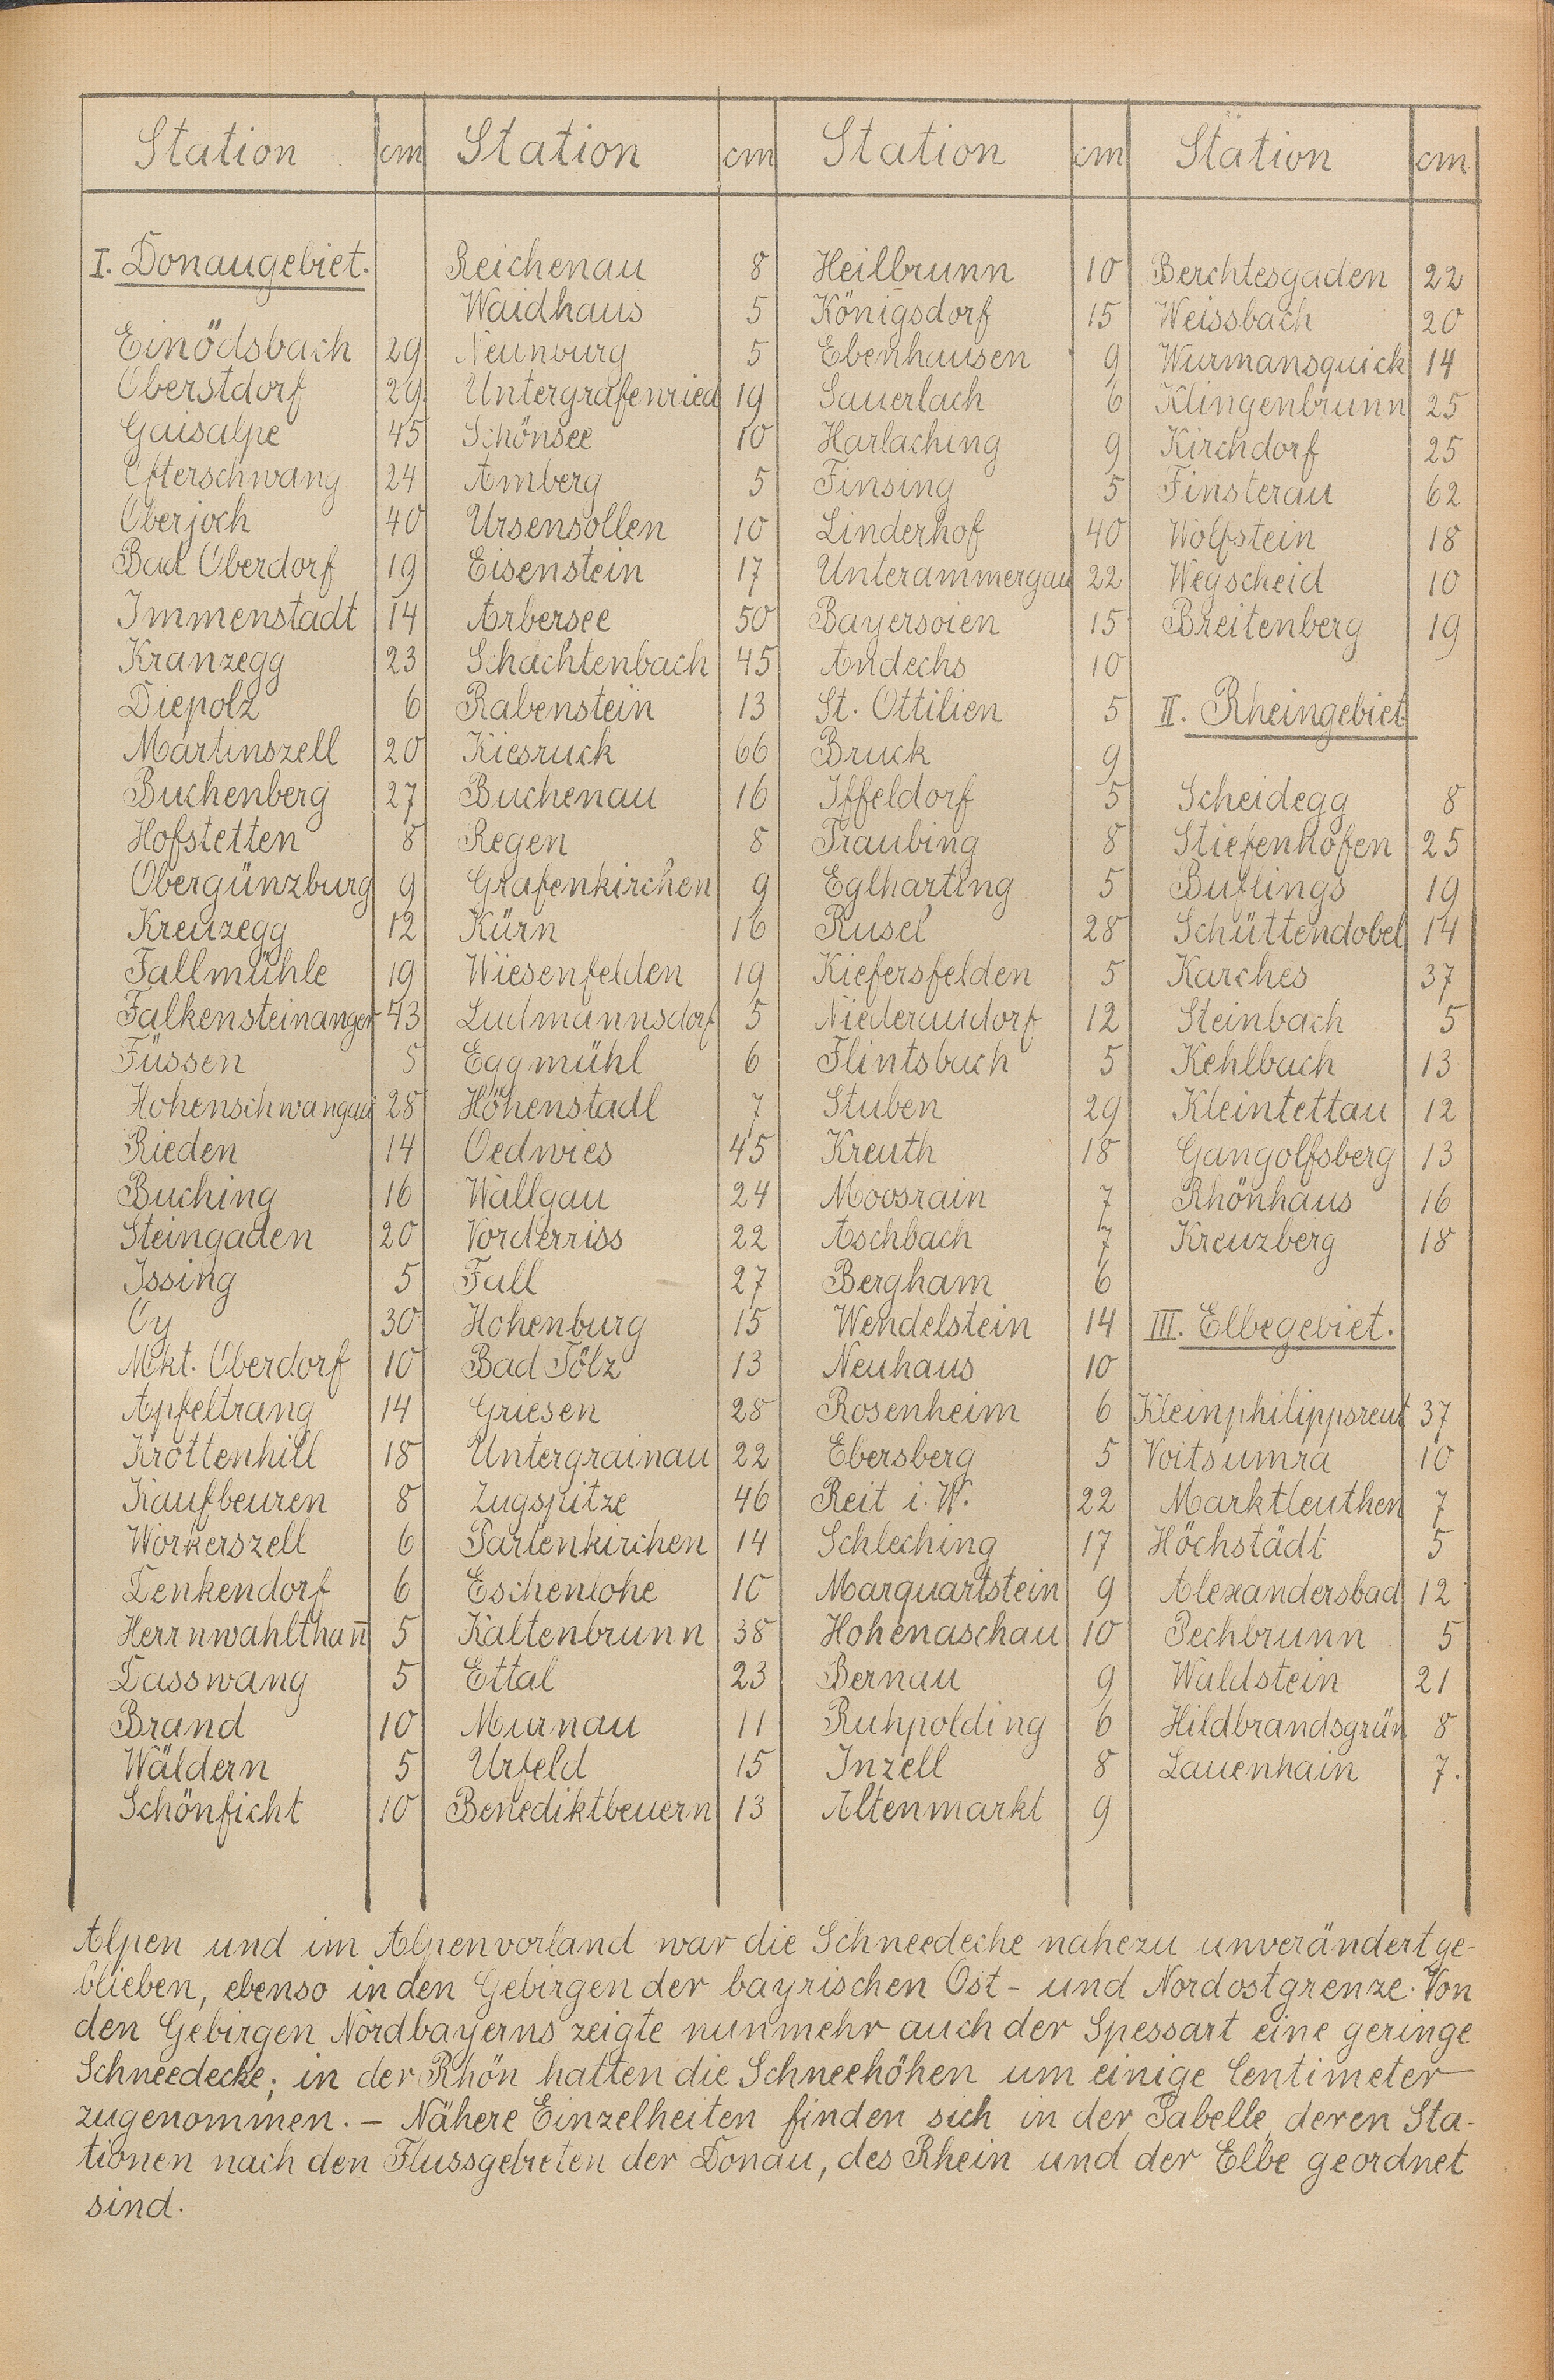 Station cm Station cm Station cm Station cm
I. Donaugebiet. Reichenau 8 Heilbrunn 10 Berchtesgaden 22
Waidhaus 5 Königsdorf 15 Weissbach 20
Einödsbach 29 Neunburg 5 Ebenhausen 9 Wurmansquick 14
Oberstdorf 29 Untergrafenried 19 Sauerlach 6 Klingenbrunn 25
Gaisalpe 45 Schönsee 10 Harlaching 9 Kirchdorf 25
Ofterschwang 24 Amberg 5 Finsing 5 Finsterau 62
Oberjoch 40 Ursensollen 10 Linderhof 40 Wolfstein 18
Bad Oberdorf 19 Eisenstein 17 Unterammergau 22 Wegscheid 10
Immenstadt 14 Arbersee 50 Bayersoien 15 Breitenberg 19
Kranzegg 23 Schachtenbach 45 Andechs 10
Diepolz 6 Rabenstein 13 St. Ottilien 5 II. Rheingebiet
Martinszell 20 Kiesruck 66 Bruck 9
Buchenberg 27 Buchenau 16 Iffeldorf 5 Scheidegg 8
Hofstetten 8 Regen 8 Traubing 8 Stiefenhofen 25
Obergünzburg 9 Grafenkirchen 9 Eglharting 5 Buflings 19
Kreuzegg 12 Kürn 16 Rusel 28 Schüttendobel 14
Fallmühle 19 Wiesenfelden 19 Kiefersfelden 5 Karches 37
Falkensteinanger 43 Ludmannsdorf 5 Niederaudorf 12 Steinbach 5
Füssen 5 Eggmühl 6 Flintsbach 5 Kehlbach 13
Hohenschwangau 28 Höhenstadl 7 Stuben 29 Kleintettau 12
Rieden 14 Oedwies 45 Kreuth 18 Gangolfsberg 13
Buching 16 Wallgau 24 Moosrain 7 Rhönhaus 16
Steingaden 20 Vorderriss 22 Aschbach 7 Kreuzberg 18
Issing 5 Fall 27 Bergham 6
Oy 30 Hohenburg 15 Wendelstein 14 III. Elbegebiet.
Mkt. Oberdorf 10 Bad Tölz 13 Neuhaus 10
Apfeltrang 14 Griesen 28 Rosenheim 6 Kleinphilippsreut 37
Krottenhill 18 Untergrainau 22 Ebersberg 5 Voitsumra 10
Kaufbeuren 8 Zugspitze 46 Reit i. W. 22 Marktleuthen 7
Workerszell 6 Partenkirchen 14 Schleching 17 Höchstädt 5
Denkendorf 6 Eschenlohe 10 Marquartstein 9 Alexandersbad 12
Herrnwahlthan̄ 5 Kaltenbrunn 38 Hohenaschau 10 Pechbrunn 5
Dasswang 5 Ettal 23 Bernau 9 Waldstein 21
Brand 10 Murnau 11 Ruhpolding 6 Hildbrandsgrün 8
Wäldern 5 Urfeld 15 Inzell 8 Lauenhain 7.
Schönficht 10 Benediktbeuern 13 Altenmarkt 9
Alpen und im Alpenvorland war die Schneedecke nahezu unverändert ge-
blieben, ebenso in den Gebirgen der bayrischen Ost- und Nordostgrenze. Von
den Gebirgen Nordbayerns zeigte nunmehr auch der Spessart eine geringe
Schneedecke; in der Rhön hatten die Schneehöhen um einige Centimeter
zugenommen. – Nähere Einzelheiten finden sich in der Tabelle, deren Sta-
tionen nach den Flussgebieten der Donau, des Rhein und der Elbe geordnet
sind.